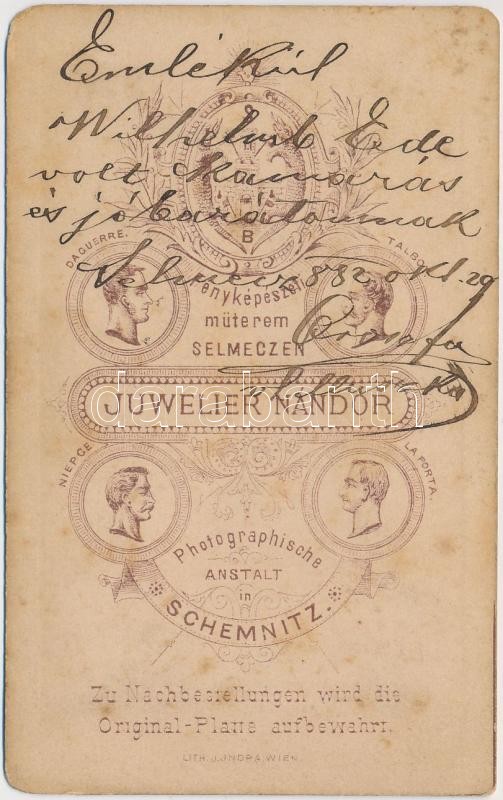 Emlékül
Wilhelmb Ede
volt kamarás
és jó barátomnak
Selmecz 882 okt. 29
B
DAGUERRE.
TALBO
Fényképészeti
műterem
SELMECZEN
JUWELIER NÁNDOR
NIEPCE
LA PORTA.
Photographische
ANSTALT
in
SCHEMNITZ.
Zu Nachbestellungen wird die
Original-Platte aufbewahrt.
LITH. J. JNDRA, WIEN.
darabanth